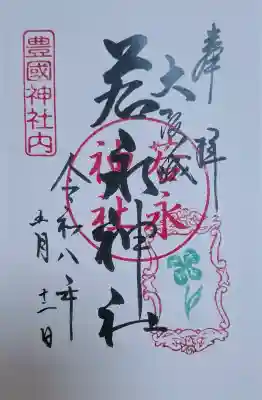 奉拝
大阪城
若永神社
若永神社
令和八年
五月日
豊國神社内